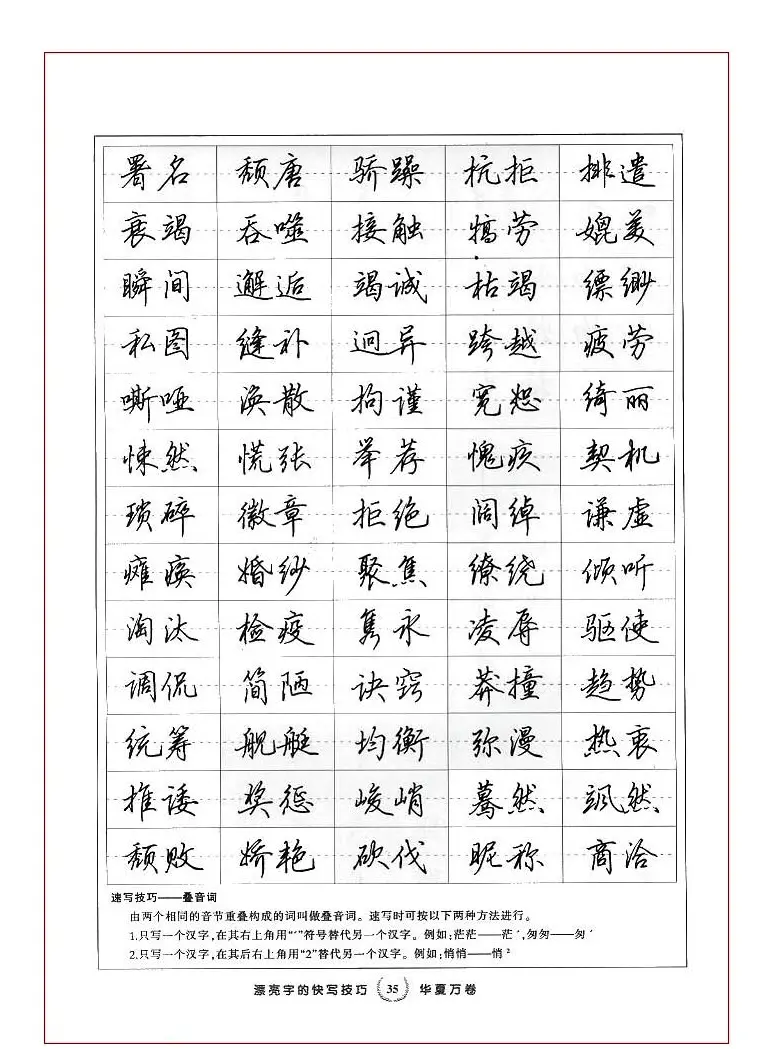 署名 颓唐 骄躁 抗拒 排遣
衰竭 吞噬 接触 犒劳 媲美
瞬间 邂逅 竭诚 枯竭 缥缈
私图 缝补 迥异 跨越 疲劳
嘶哑 涣散 拘谨 宽恕 绮丽
悚然 慌张 举荐 愧疚 契机
琐碎 徽章 拒绝 阔绰 谦虚
瘫痪 婚纱 聚焦 缭绕 倾听
淘汰 检疫 隽永 凌辱 驱使
调侃 简陋 诀窍 莽撞 趋势
统筹 舰艇 均衡 弥漫 热衷
推诿 奖惩 峻峭 蓦然 飒然
颓败 娇艳 砍伐 昵称 商洽
速写技巧——叠音词
由两个相同的音节重叠构成的词叫做叠音词。速写时可按以下两种方法进行。
1.只写一个汉字,在其右上角用“ˊ”符号替代另一个汉字。例如:茫茫——茫ˊ,匆匆——匆ˊ
2.只写一个汉字,在其后右上角用“2”替代另一个汉字。例如:悄悄——悄²
漂亮字的快写技巧 35 华夏万卷